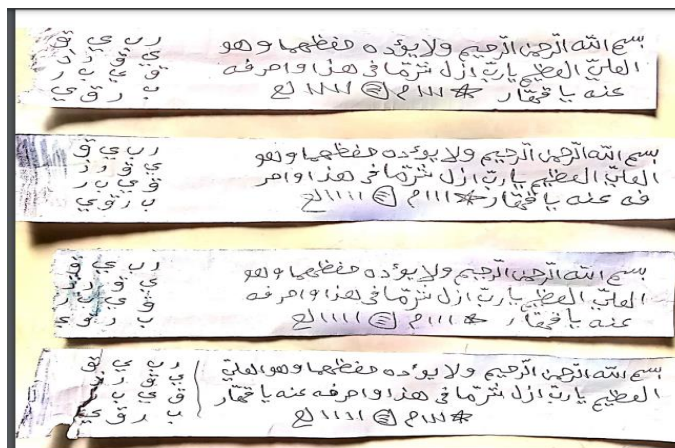 بسم الله الرّحمن الرّحيم ولا يؤده حفظهما وهو
العليّ العظيم ياربّ ازل شرّما فى هذا واصرفه
عنه يا قهّار
ر ب ي ق
ي ق ر ب
ق ي ب ر
ب ر ق ي
بسم الله الرّحمن الرّحيم ولا يؤده حفظهما وهو
العليّ العظيم ياربّ ازل شرّما فى هذا واصر
فه عنه يا قهّار
ر ب ي ق
ي ق ر ب
ق ي ب ر
ب ر ق ي
بسم الله الرّحمن الرّحيم ولا يؤده حفظهما وهو
العليّ العظيم ياربّ ازل شرّما فى هذا واصرفه
عنه يا قهّار
ر ب ي ق
ي ق ر ب
ق ي ب ر
ب ر ق ي
بسم الله الرّحمن الرّحيم ولا يؤده حفظهما وهو العليّ
العظيم ياربّ ازل شرّما فى هذا واصرفه عنه يا قهّار
ر ب ي ق
ي ق ر ب
ق ي ب ر
ب ر ق ي